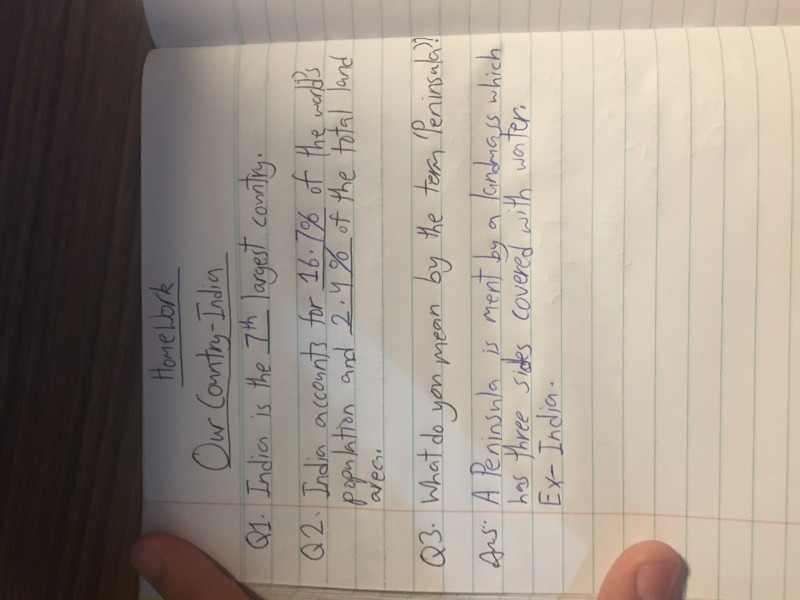 HomeWork
Our Country-India
Q1. India is the 7th largest country.
Q2. India accounts for 16.7% of the world's
population and 2.4% of the total land
area.
Q3. What do you mean by the term 'Peninsula'?
Ans. A Peninsula is ment by a landmass which
has three sides covered with water.
Ex- India.